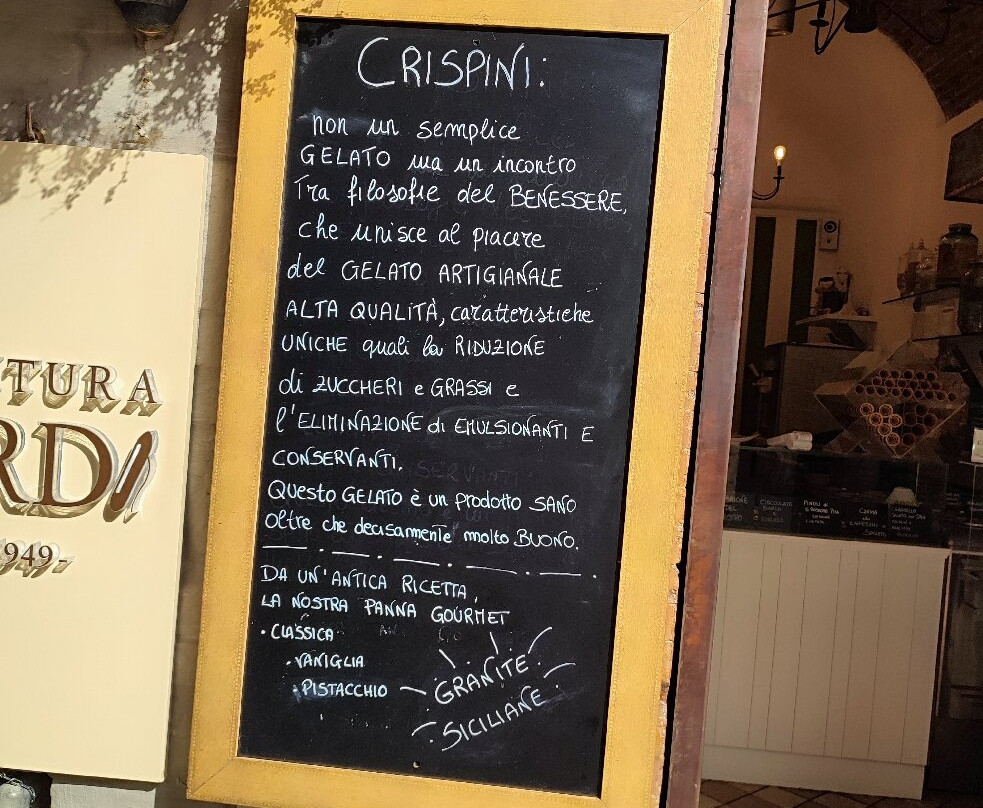 CRISPINI:
non un semplice
GELATO ma un incontro
Tra filosofie del BENESSERE,
che unisce al piacere
del GELATO ARTIGIANALE
ALTA QUALITÀ, caratteristiche
UNICHE quali la RIDUZIONE
di ZUCCHERI e GRASSI e
l'ELIMINAZIONE di EMULSIONANTI E
CONSERVANTI.
QUESTO GELATO è un prodotto SANO
oltre che decisamente molto BUONO.
DA UN'ANTICA RICETTA,
LA NOSTRA PANNA GOURMET
• CLASSICA
• VANIGLIA
• PISTACCHIO
GRANITE
SICILIANE
TURA
RDI
1949-